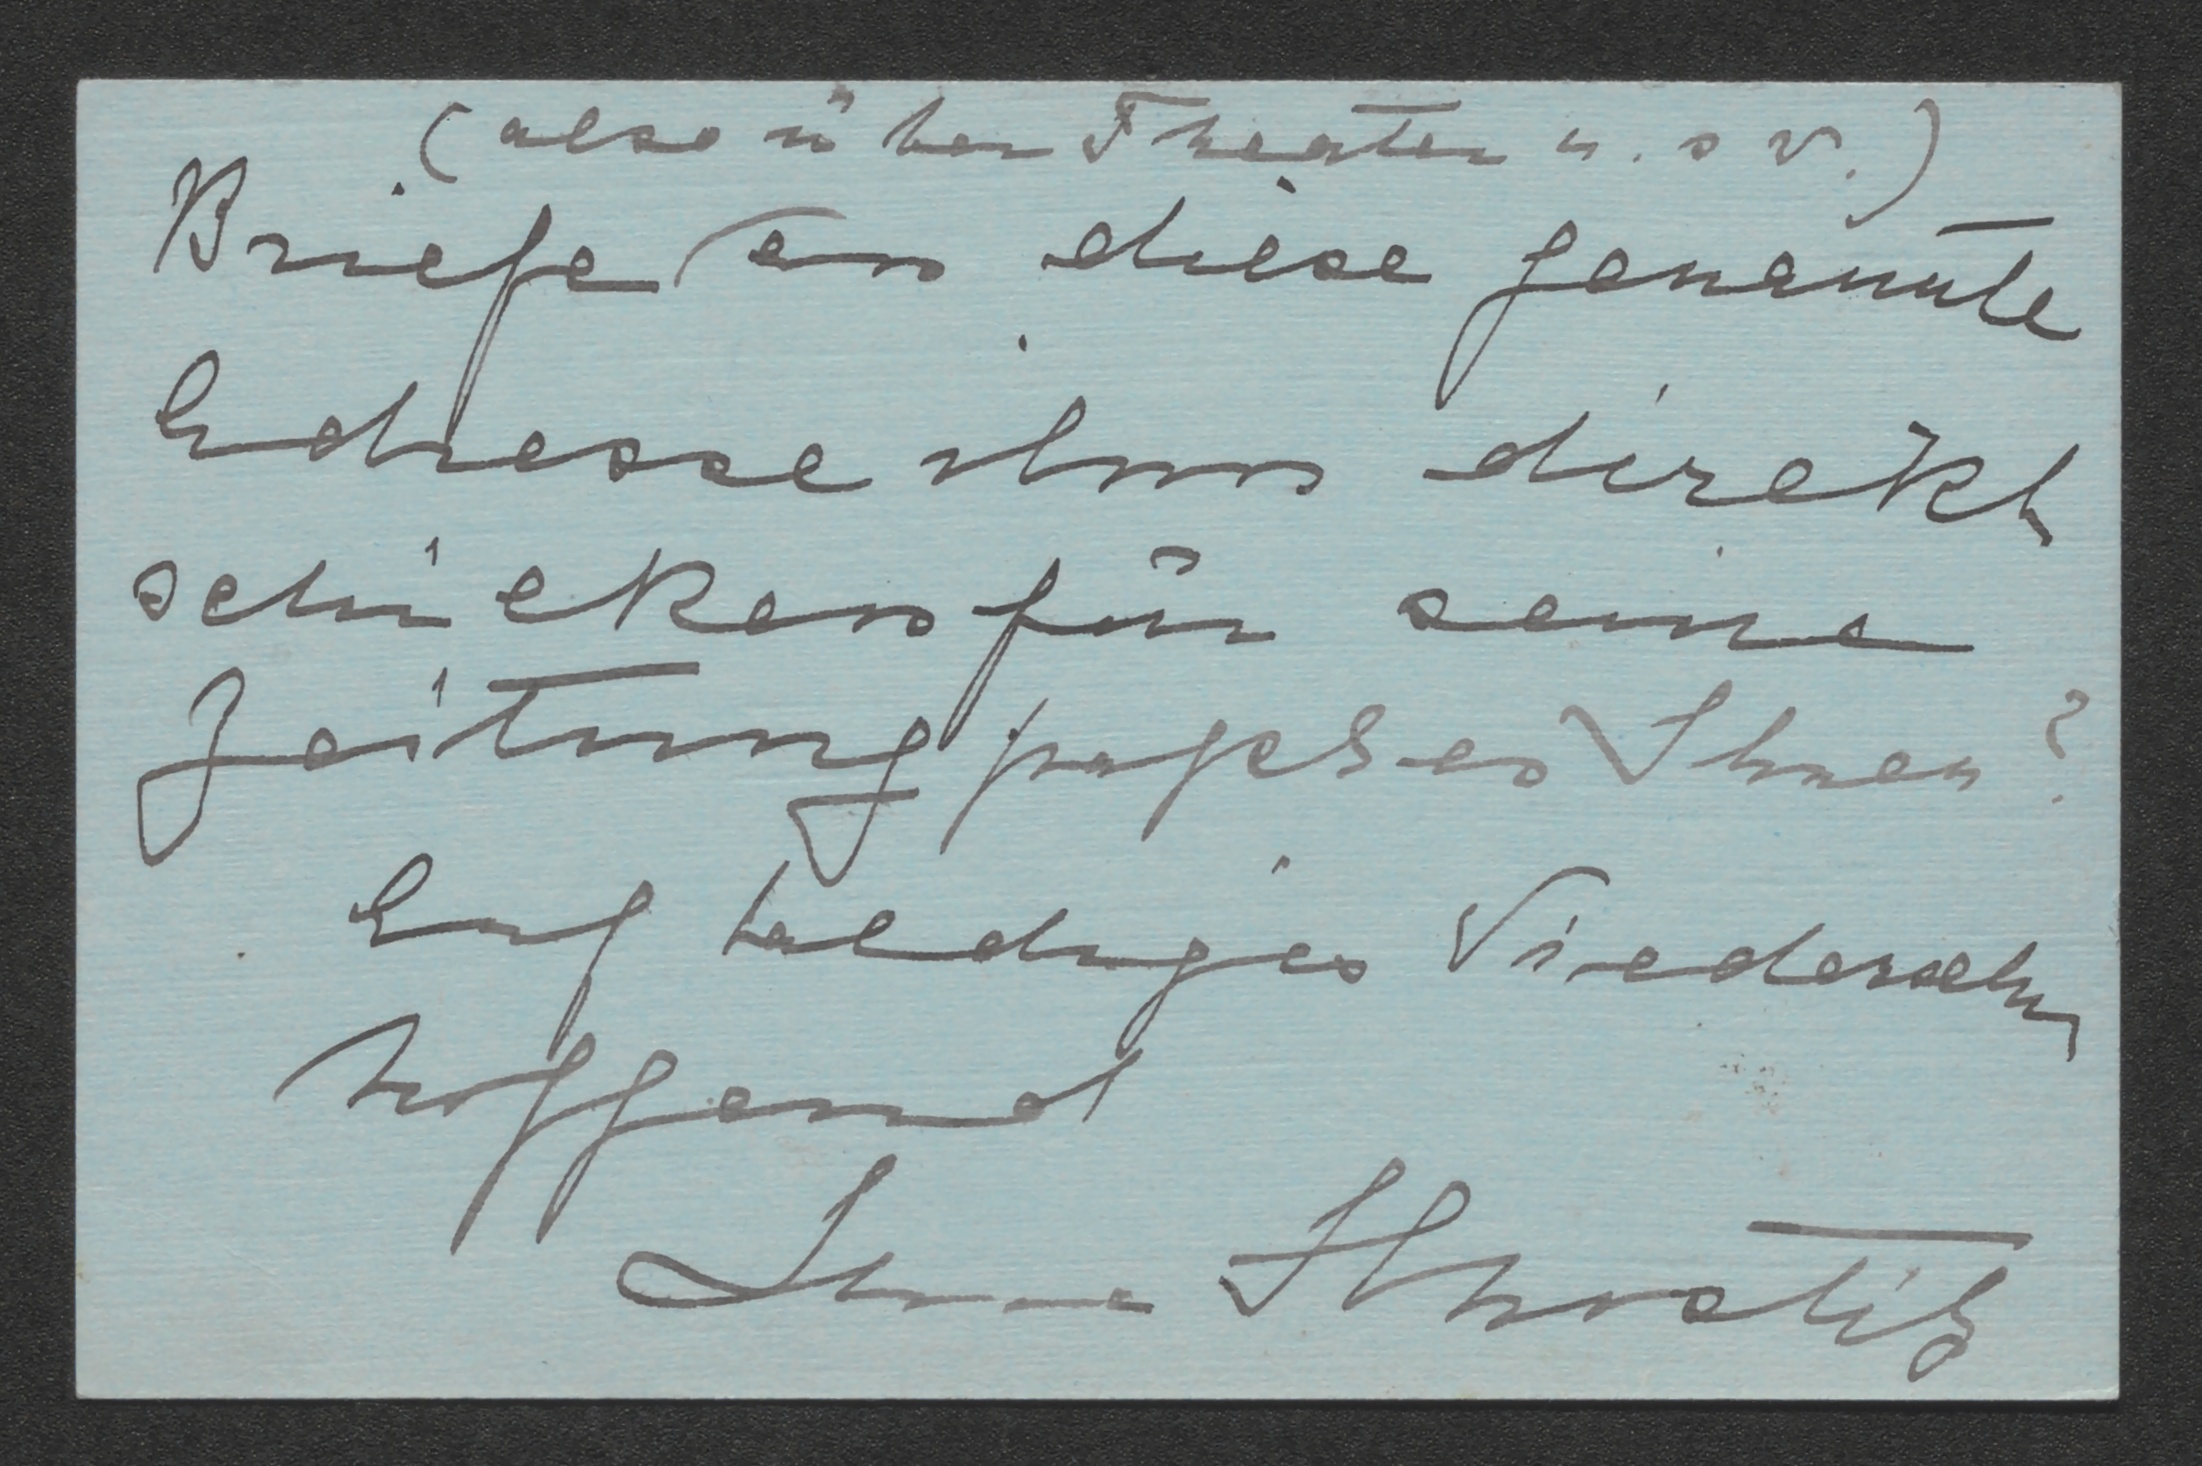 (also über Theater u. s w.)
Briefe an diese genannte
Adresse ihm direkt
schicken für seine
Zeitung passt es Ihnen?
Auf baldiges Wiedersehn
hoffend
Ihre